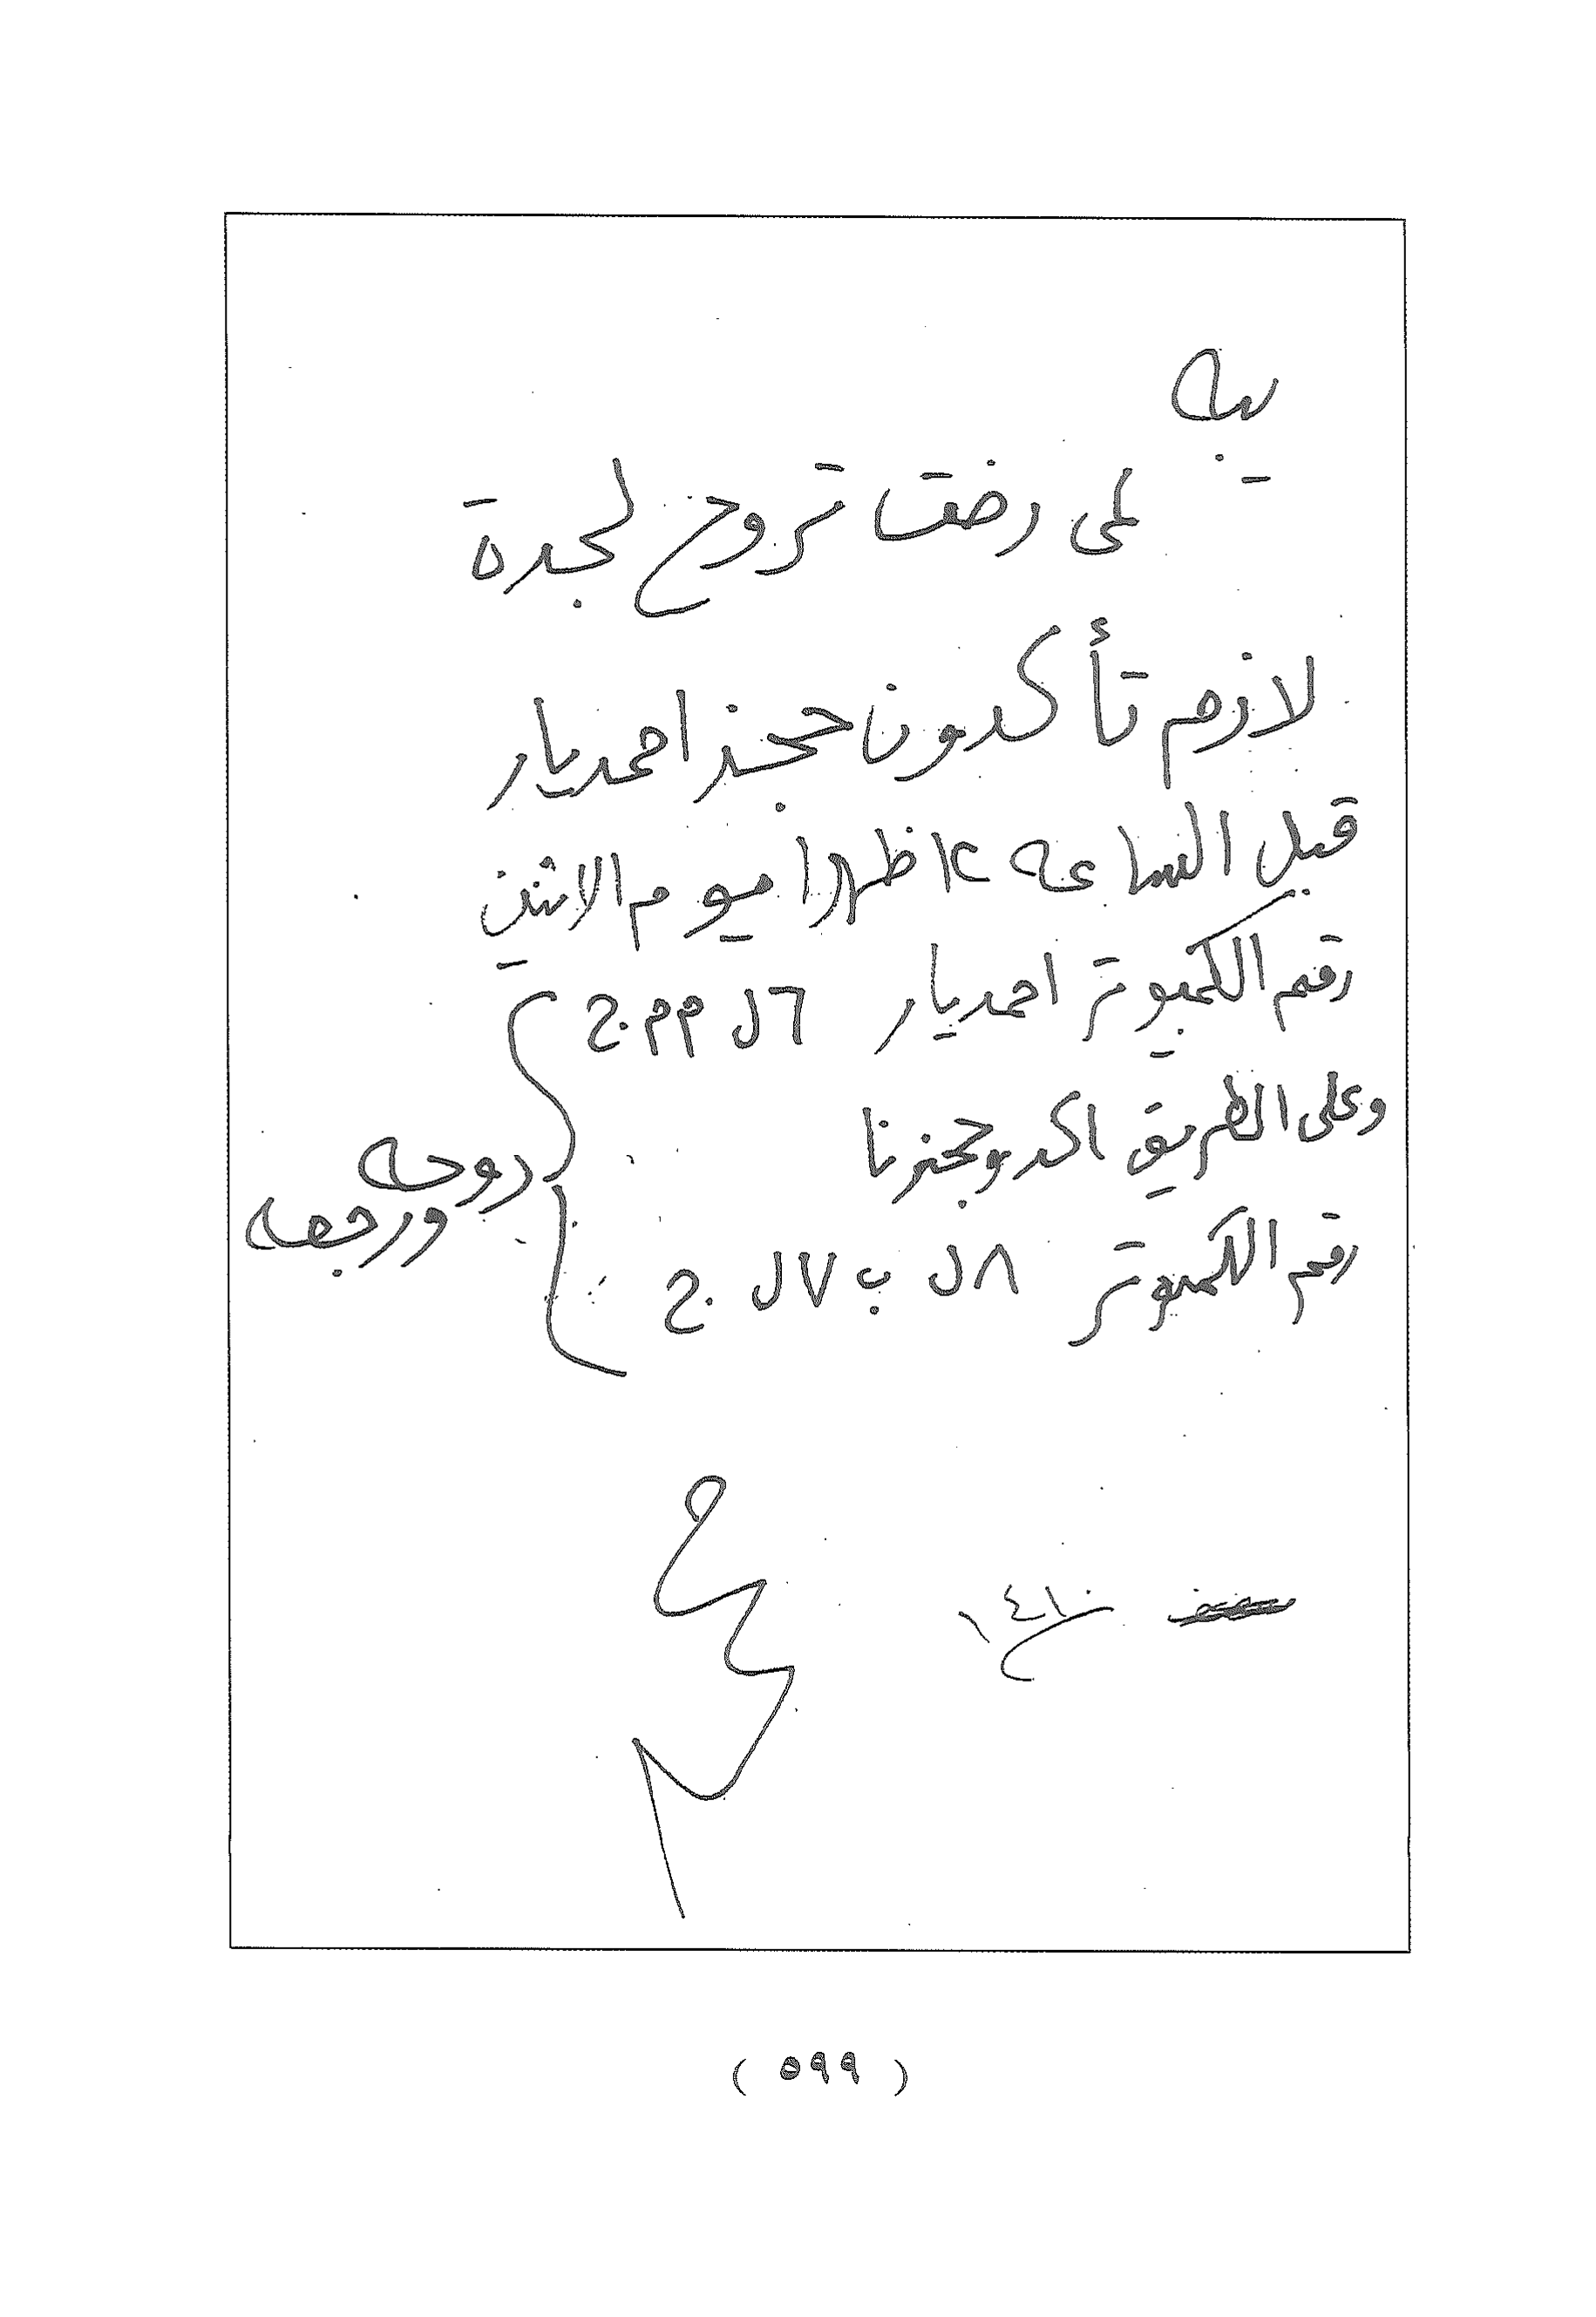 يبه
لمى رفضت تروح لجدة
لازم تأكدون حجز احمديار
قبل الساعه ١٢ ظهرا يوم الاثنين
رقم الكمبيوتر احمديار ٦ ل م م . ج
وعلى الطريق اكدو حجزنا
رقم الكمبيوتر ٨ ل ب ٧ ل . ج
روحه
ورجعه
١٤١٠
( ٥٩٩ )